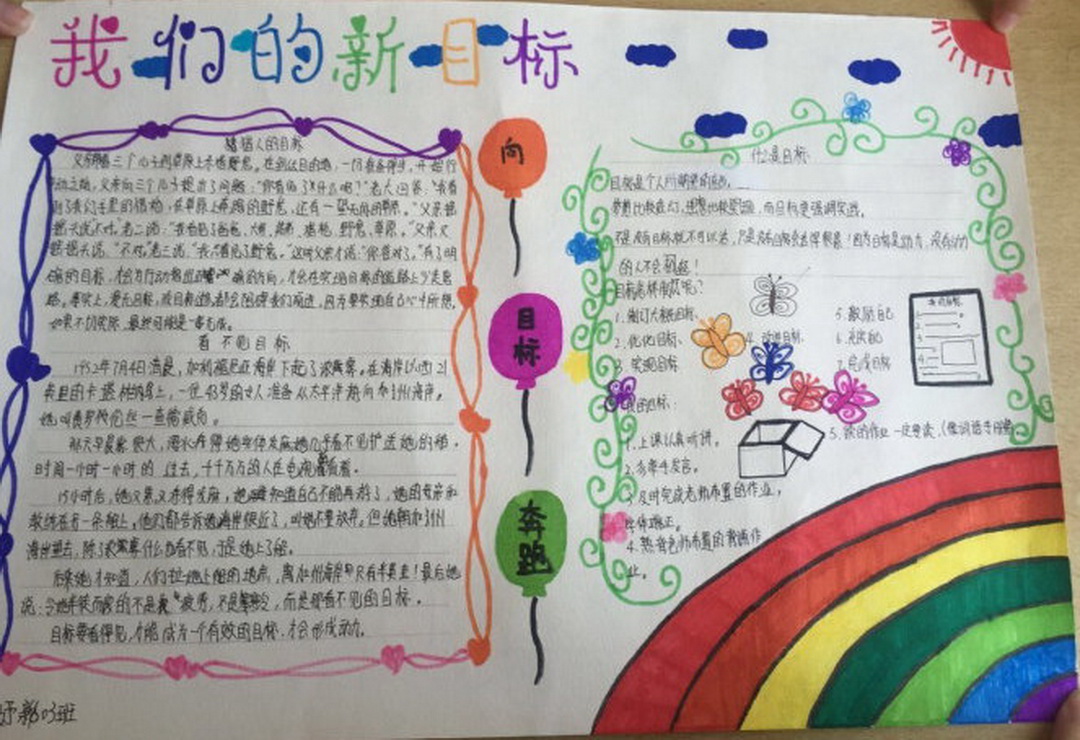 我们的新目标
猎人的目标
父亲带着三个儿子到草原上去猎野兔。在到达目的地，一切准备得当，开始行
动之前，父亲向三个儿子提出了问题："你看见了什么呢？"老大回答："我看
到了我们手里的猎枪，在草原上奔跑的野兔，还有一望无际的草原。"父亲摇
摇头说："不对。"老二说："我看见了爸爸、大哥、弟弟、猎枪、野兔、草原。"父亲又
摇摇头说："不对。"老三说："我只看见了野兔。"这时父亲说："你答对了。"有了明
确的目标，才会为行动指出正确的方向，才会在实现目标的道路上少走弯
路。事实上，漫无目标，或目标过多，都会阻碍我们前进，因为要实现自己心中所想，
如果不切实际，最终可能是一事无成。
看不见目标
1952年7月4日清晨，加利福尼亚海岸下起了浓雾。在海岸以西21
英里的卡塔林纳岛上，一位43岁的女人准备从太平洋游向加州海岸。
她叫费罗伦丝·查德威克。
那天早晨雾很大，海水冻得她身体发麻，她几乎看不见护送她的船。
时间一个小时一小时的过去，千千万万的人在电视看着。
15小时后，她又累又冻得发麻，她知道自己不能再游了，她的母亲和
教练在另一条船上。他们都告诉她海岸很近了，叫她不要放弃。但她朝加州
海岸望去，除了浓雾什么也看不见，于是她上了船。
后来她才知道，人们拉她上船的地点，离加州海岸只有半英里！最后她
说：令她半途而废的不是疲劳，不是寒冷，而是那看不见的目标。
目标要看得见，才能成为一个有效的目标，才会形成动力。
向
目标
奔跑
什么是目标
目标是个人所期望的成就。
梦想比较虚幻，理想比较坚定，而目标更强调实践。
不是没有目标就不可以去，只是没有目标会走得很累！因为目标是动力，没有动力
的人不会
目标怎样做成呢？
1. 制订大概目标。
2. 优化目标。
3. 实现目标
4. 改进目标
5. 激励自己
6. 充实自己
7. 完成目标
我的目标：
1. 上课认真听讲。
2. 多举手发言。
3. 及时完成老师布置的作业，
字体端正。
4. 熟背老师布置的背诵作
业。
5. 读的作业一定要读。